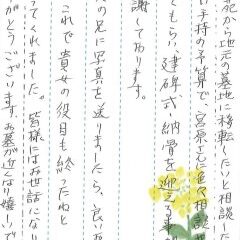 花から地元の墓地に移転したいと相談した
手持の予算で、宮原さんに色々相談
てもらい、建碑式、納骨を迎える事
謝しております。
の兄に写真を送りましたら、良いお
これで貴女の役目も終ったねと
ってくれました。皆様にはお世話になり
がとうございます、お墓が近くなり嬉しいで